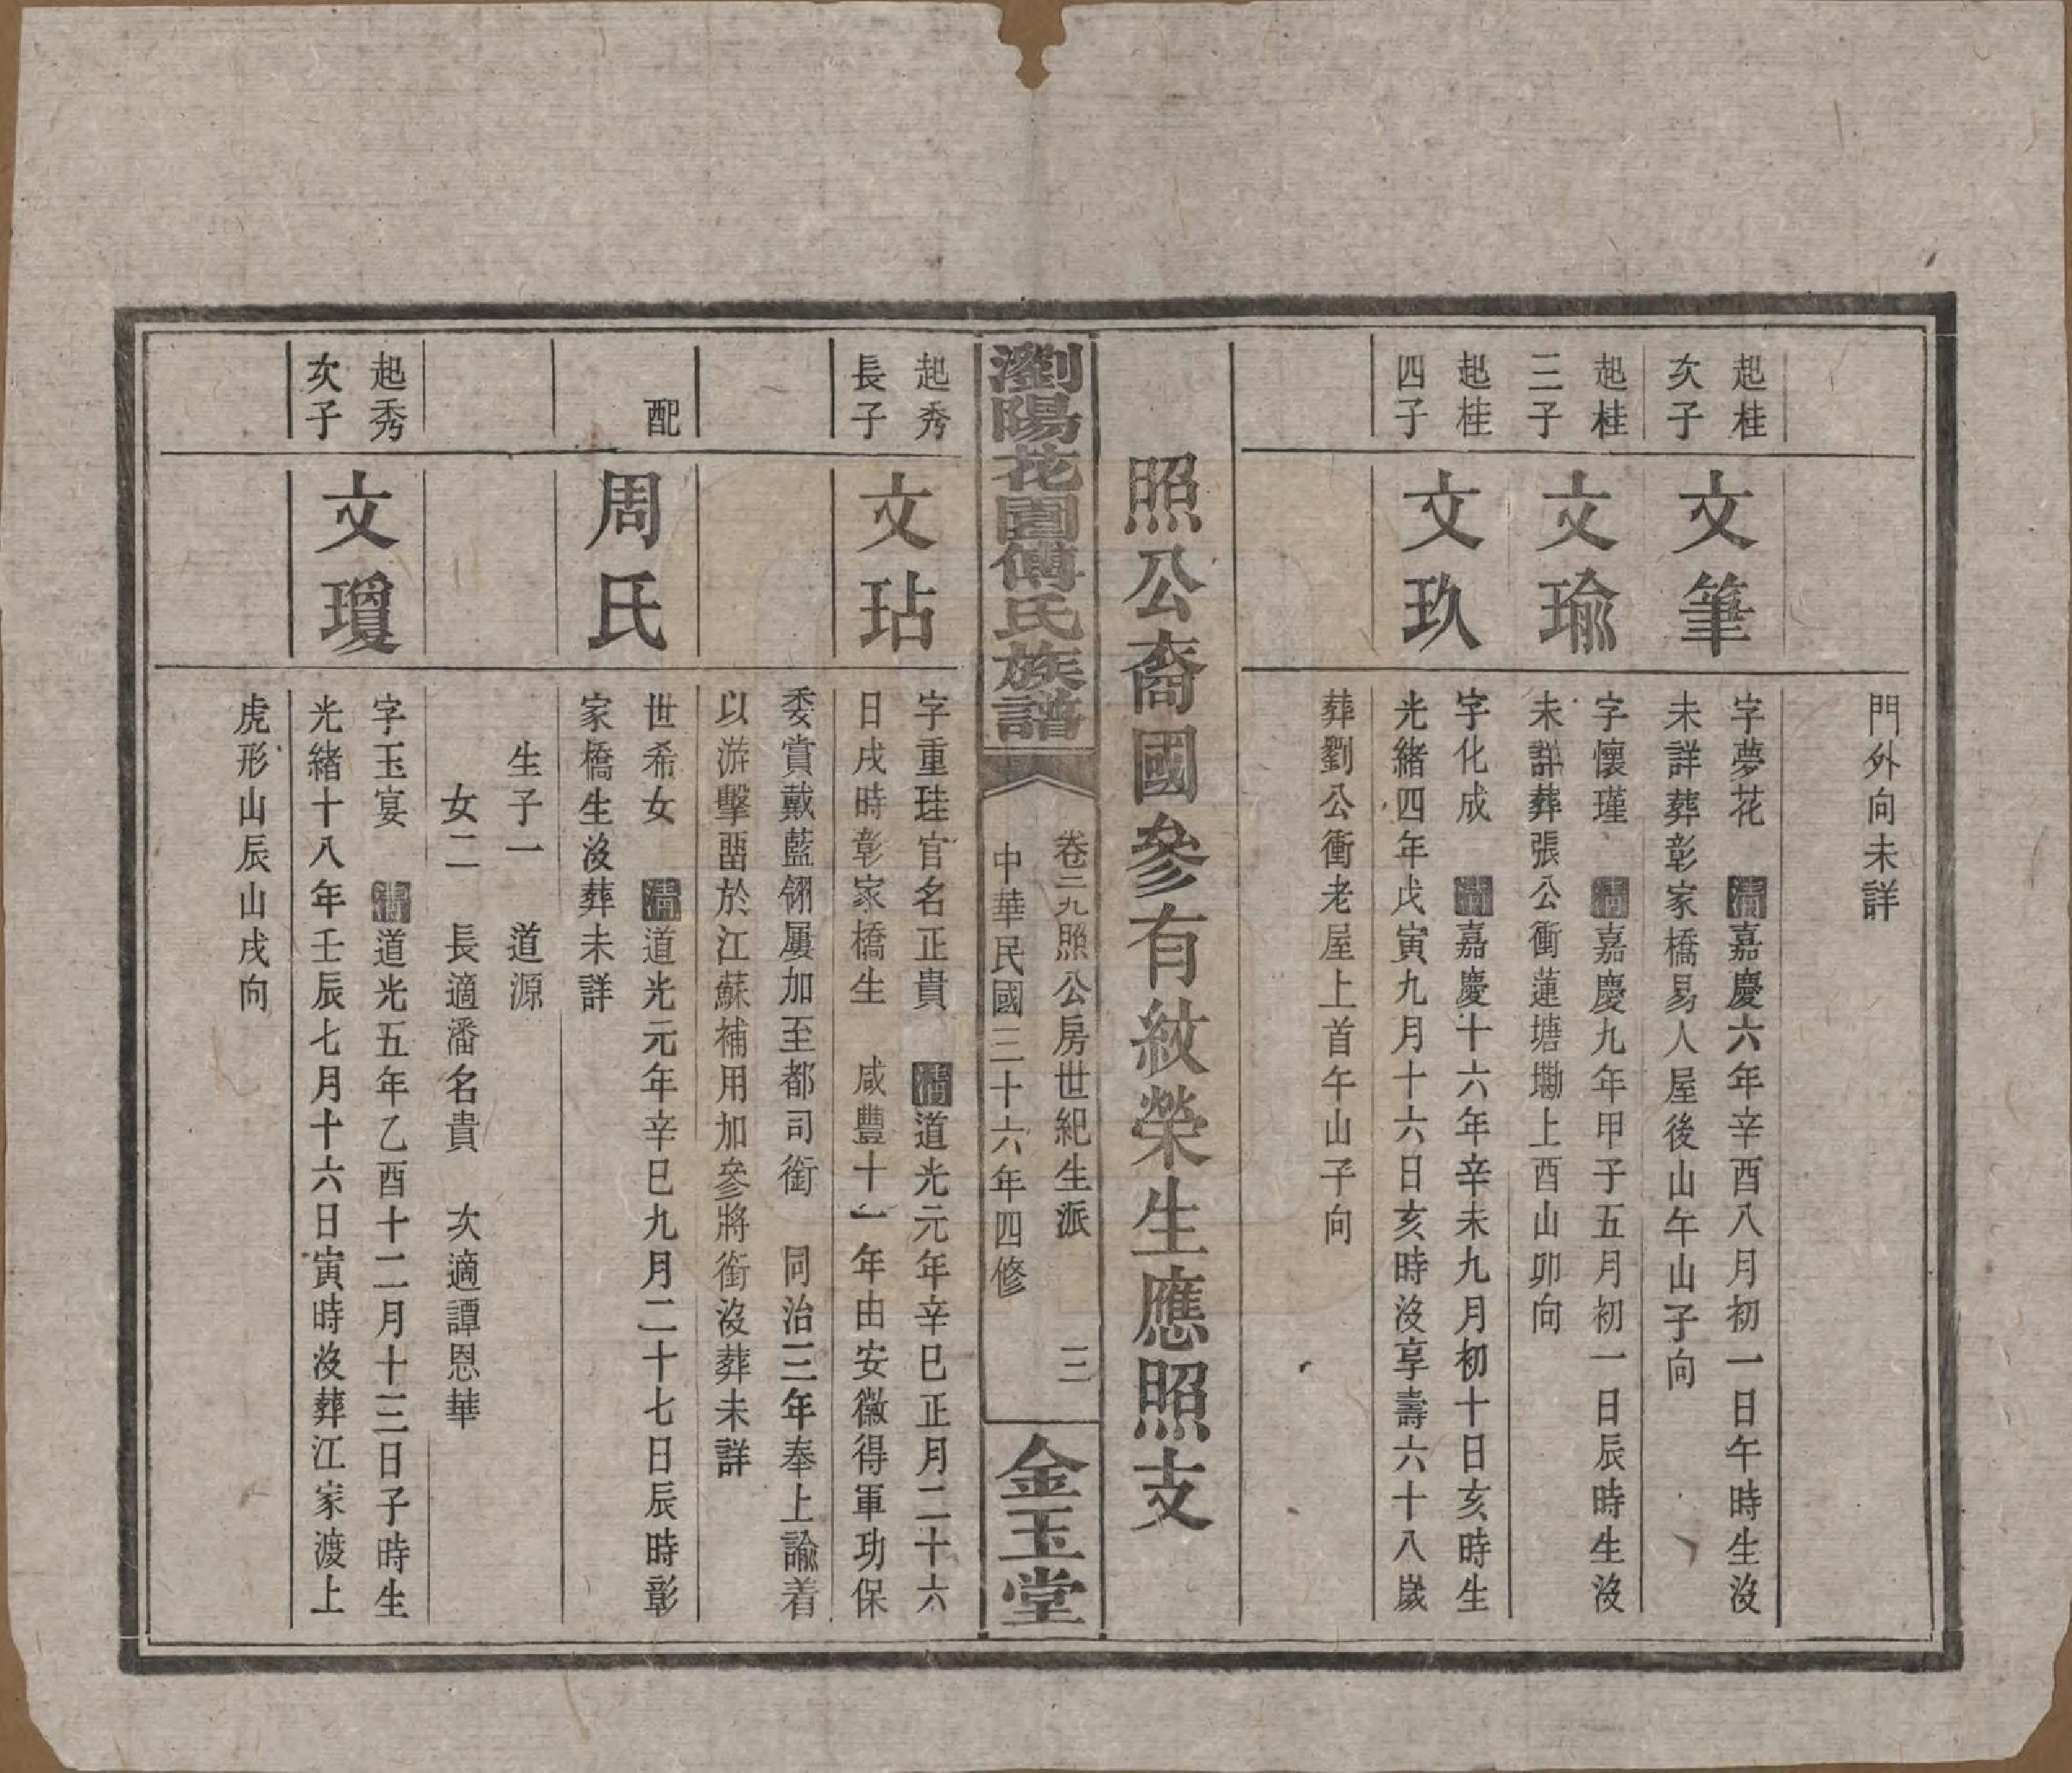 門外向未詳
起桂
次子
文筆
字夢花　清嘉慶六年辛酉八月初一日午時生沒
未詳葬彰家橋易人屋後山午山子向
起桂
三子
文瑜
字懷瑾　清嘉慶九年甲子五月初一日辰時生沒
未詳葬張公衝蓮塘墈上酉山卯向
起桂
四子
文玖
字化成　清嘉慶十六年辛未九月初十日亥時生
光緒四年戊寅九月十六日亥時沒享壽六十八歲
葬劉公衝老屋上首午山子向
照公裔國參有紋榮生應照支
瀏陽花園傅氏族譜
卷二九照公房世紀生派　三
中華民國三十六年四修
金玉堂
起秀
長子
文玷
字重珪官名正貴　清道光元年辛巳正月二十六
日戌時彰家橋生　咸豐十一年由安徽得軍功保
委賞戴藍翎屢加至都司銜　同治三年奉上諭着
以游擊畱於江蘇補用加參將銜沒葬未詳
配
周氏
世希女　清道光元年辛巳九月二十七日辰時彰
家橋生沒葬未詳
生子一　道源
女二　長適潘名貴　次適譚恩華
起秀
次子
文瓊
字玉宴　清道光五年乙酉十二月十三日子時生
光緒十八年壬辰七月十六日寅時沒葬江家渡上
虎形山辰山戌向